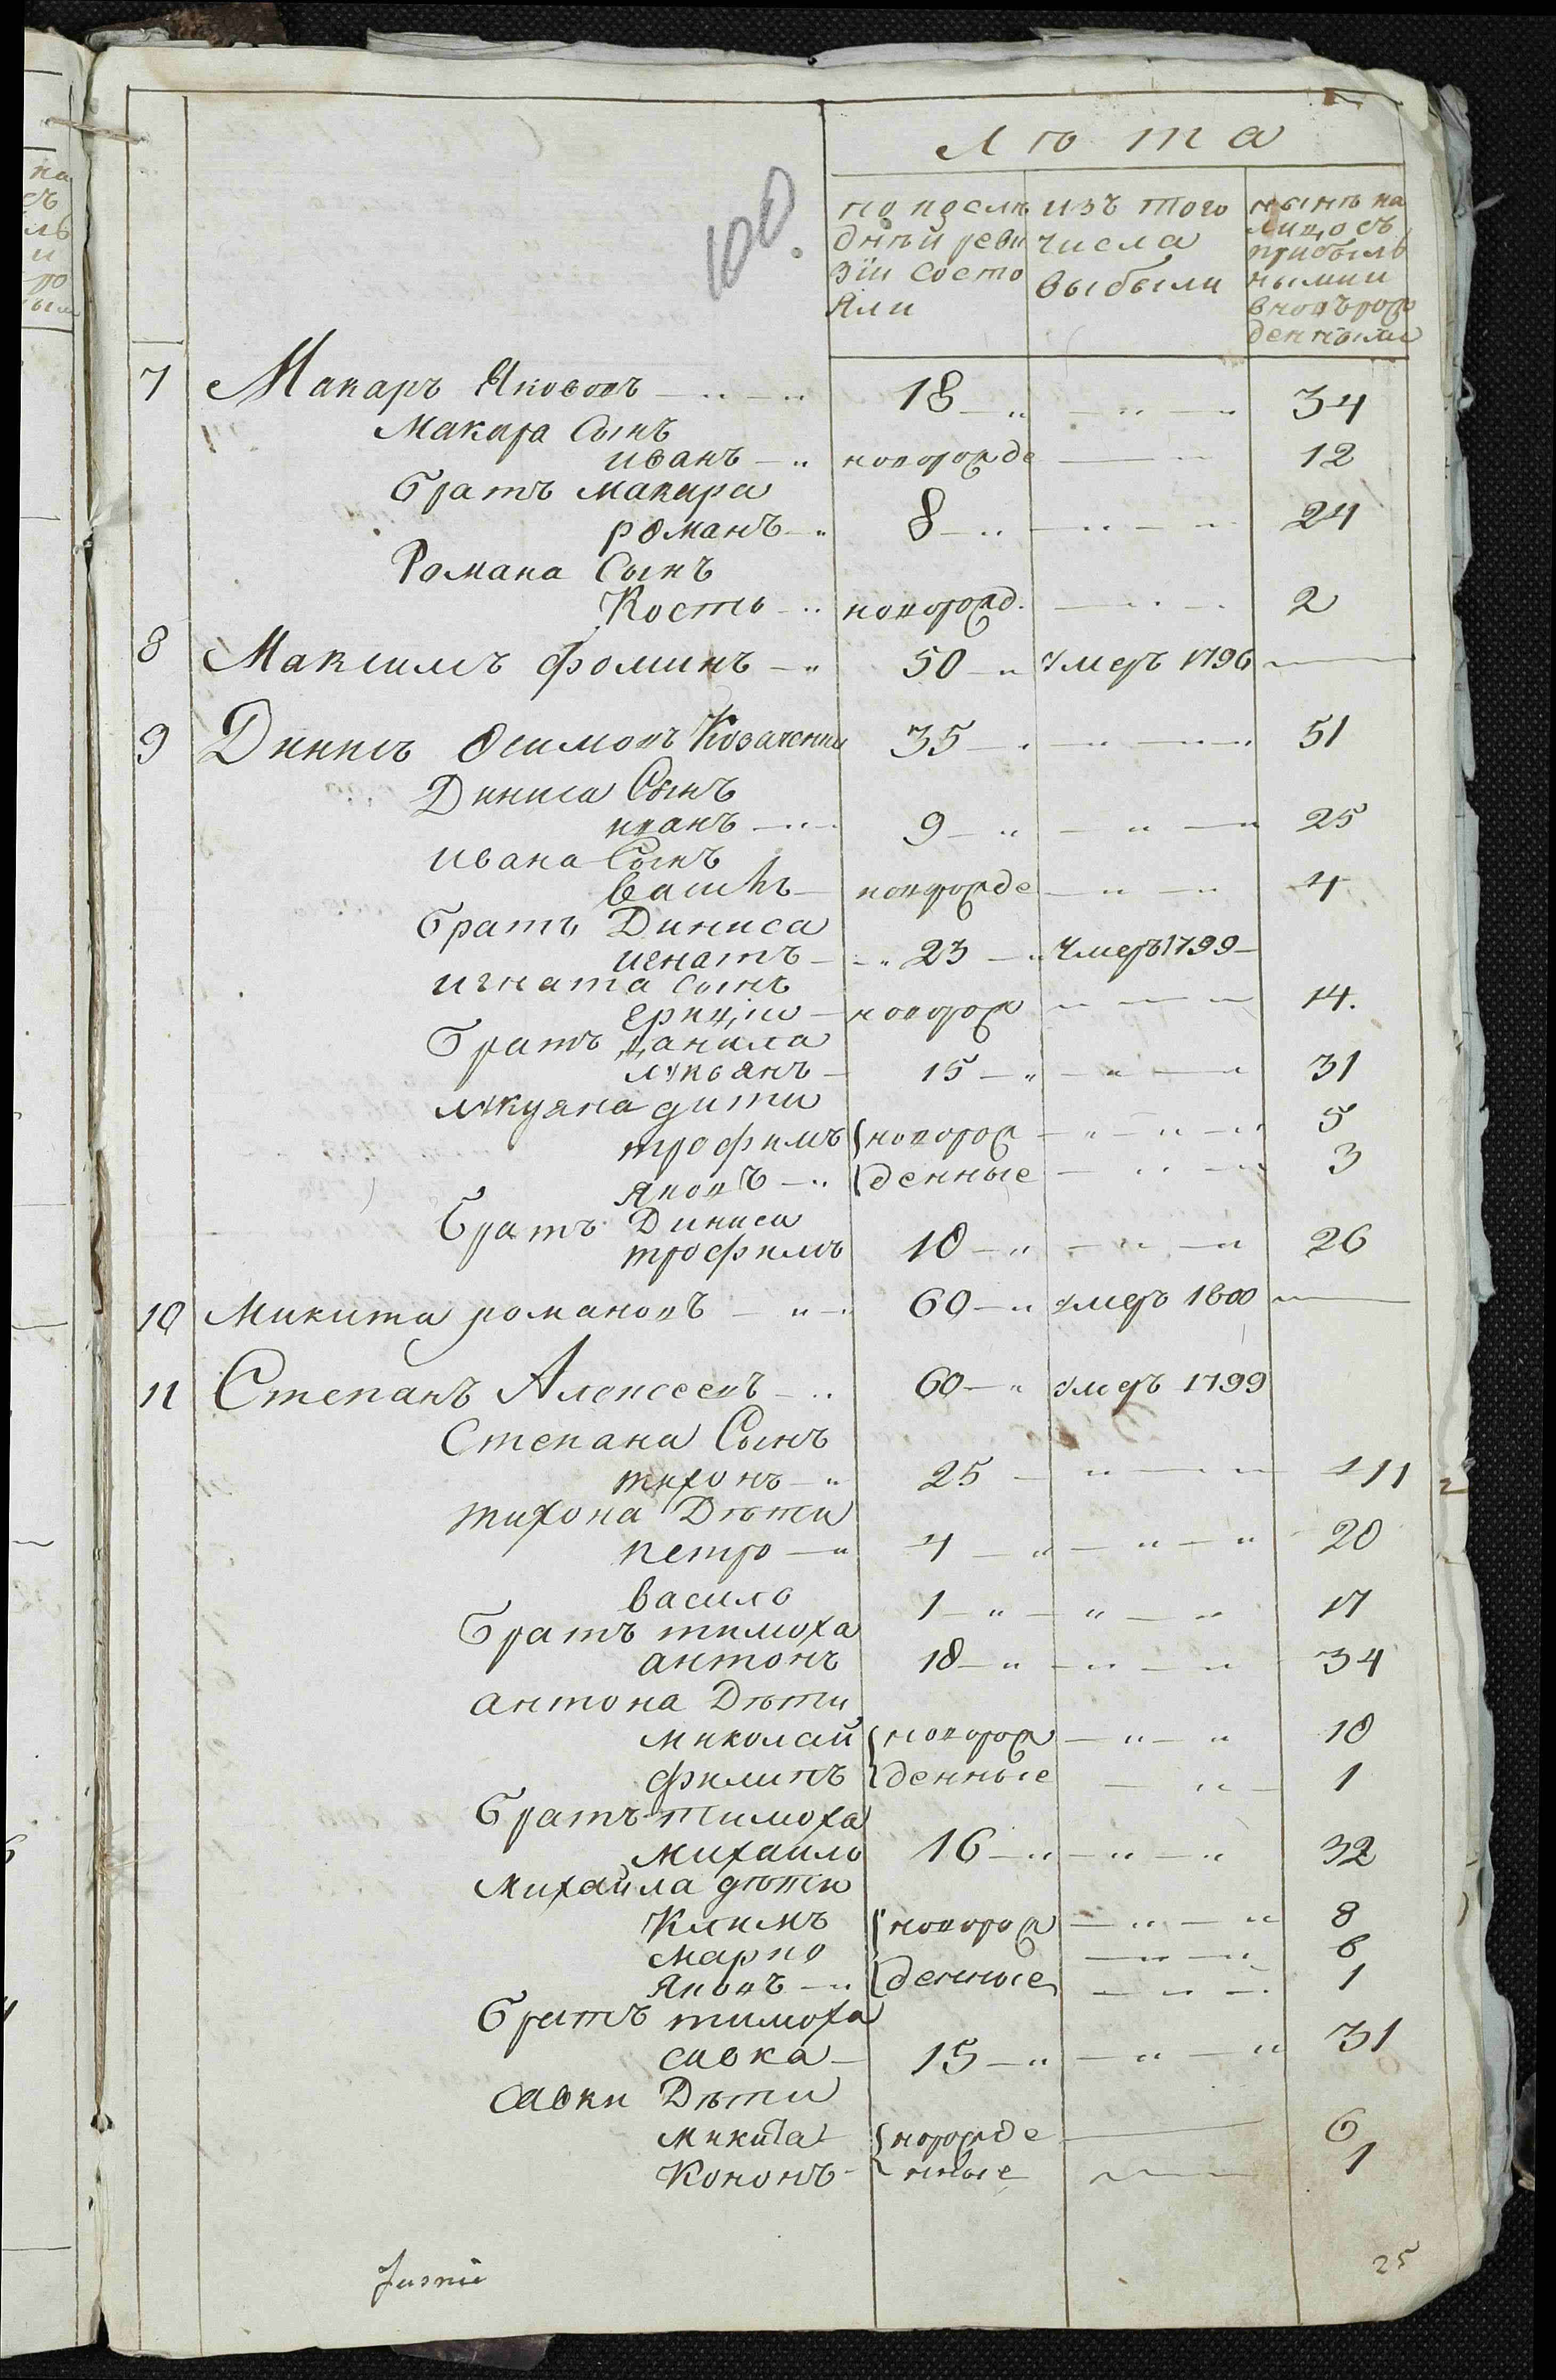 100.
Лѣта
по послѣ
днѣй реви
зіи состо
яли
изъ того
числа
выбыли
нынѣ на
лицо съ
прибылв
нымии
вновърож
денными
7 Макаръ Якововъ 18 34
Макара Сынъ
иванъ новорожде 12
братъ макара
романъ 8 24
Романа Сынъ
Костьноворожд. 2
8 Максимъ фоминъ 50 умеръ 1796
9 Динисъ Осимовъ Козаченки 35 51
Диниса Сынъ
иванъ 9 25
ивана Сынъ
василь новорожде 4
братъ Диниса
игнатъ 23 умеръ 1799
игната сынъ
новорож 14.
братъ данила
лукьянъ 15 31
дити
трофимъ новорож 5
яковъ денные 3
братъ Диниса
трофимъ 10 26
10 Микита романовъ 60 умеръ 1800
11 Степанъ Алексеевъ 60 умеръ 1799
Степана Сынъ
тихонъ 25 41
тихона Дѣти
петро 4 20
василь 1 17
братъ тимоха
антонъ 18 34
антона Дѣти
миколай новорож 10
филипъ денные 1
братъ тимоха
михаило 16 32
михаила дѣти
Климъ новорож 8
марко 6
яковъ денные 1
братъ тимоха
савка 15 31
савки Дѣти
микита норожде 6
Кононъ нные 1
25